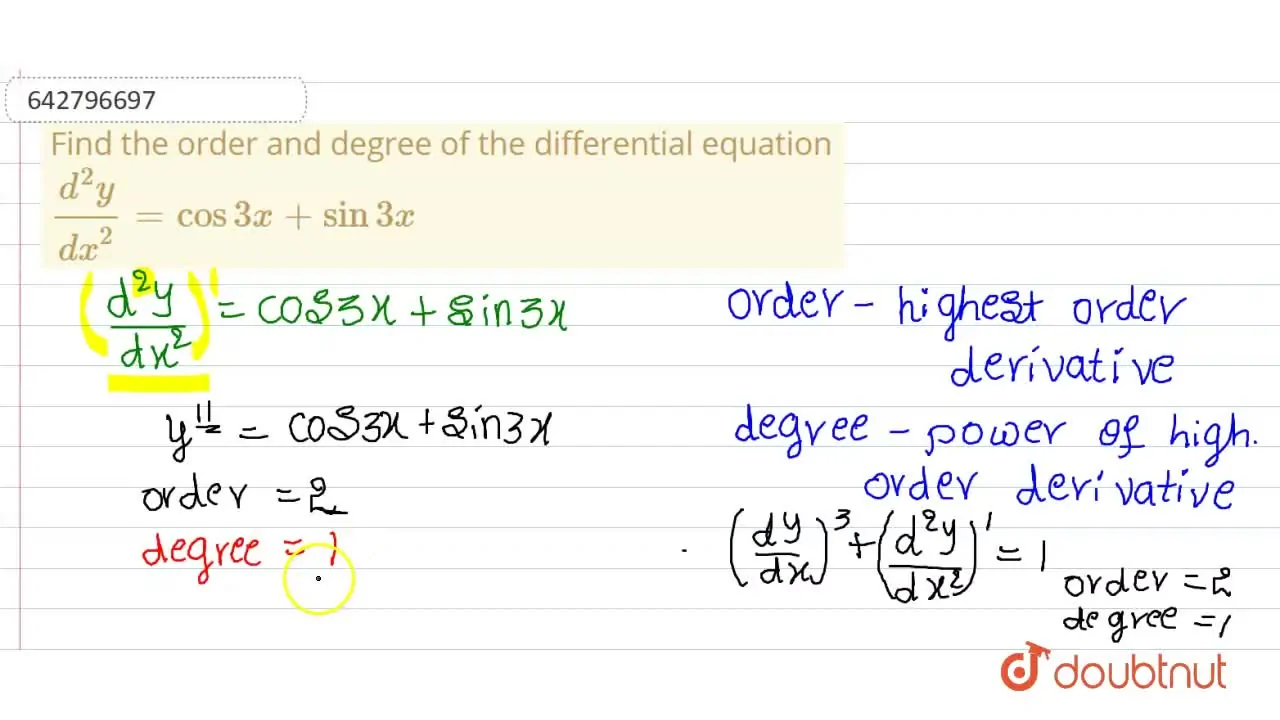 642796697
Find the order and degree of the differential equation
d²y/dx² = cos 3x + sin 3x
(d²y/dx²)¹ = cos3x + sin3x
y'' = cos3x + sin3x
order = 2
degree = 1
order - highest order
derivative
degree - power of high.
order derivative
(dy/dx)³ + (d²y/dx²)¹ = 1
order = 2
degree = 1
doubtnut